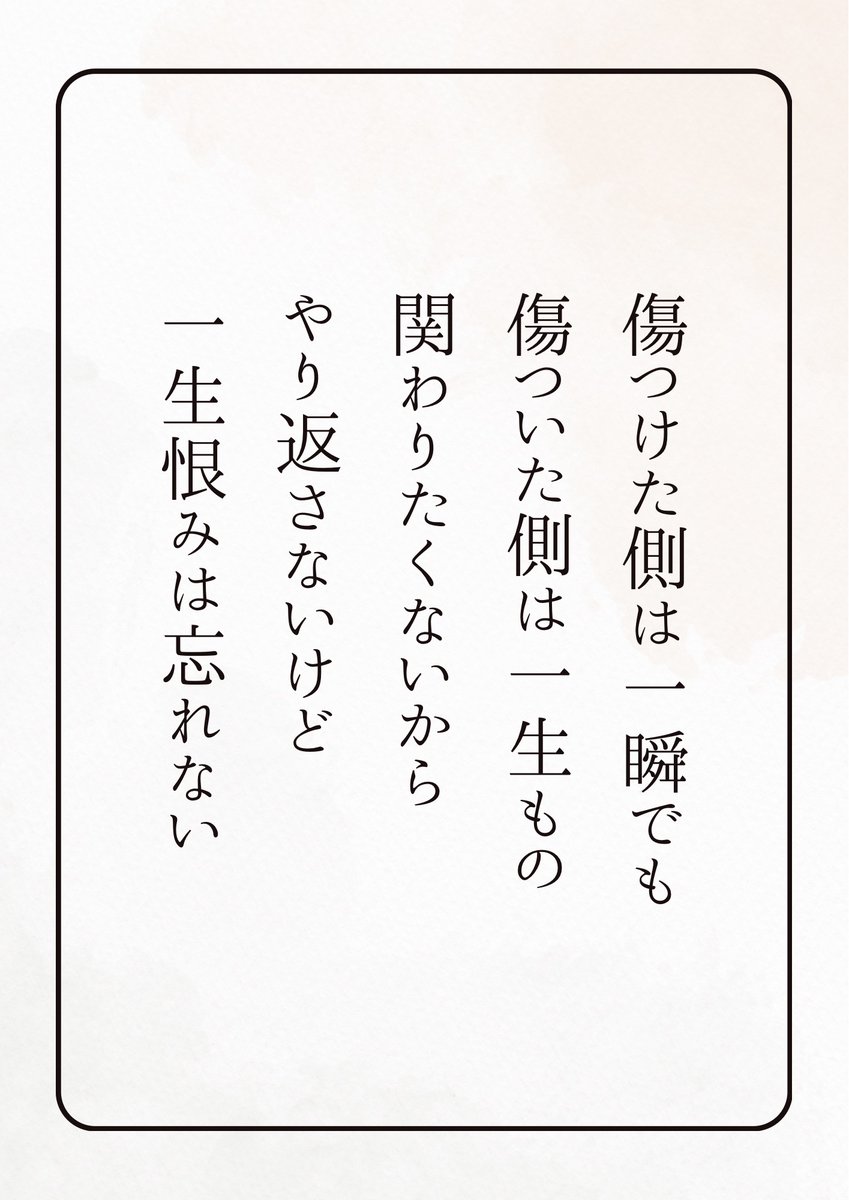 傷つけた側は一瞬でも
傷ついた側は一生もの
関わりたくないから
やり返さないけど
一生恨みは忘れない